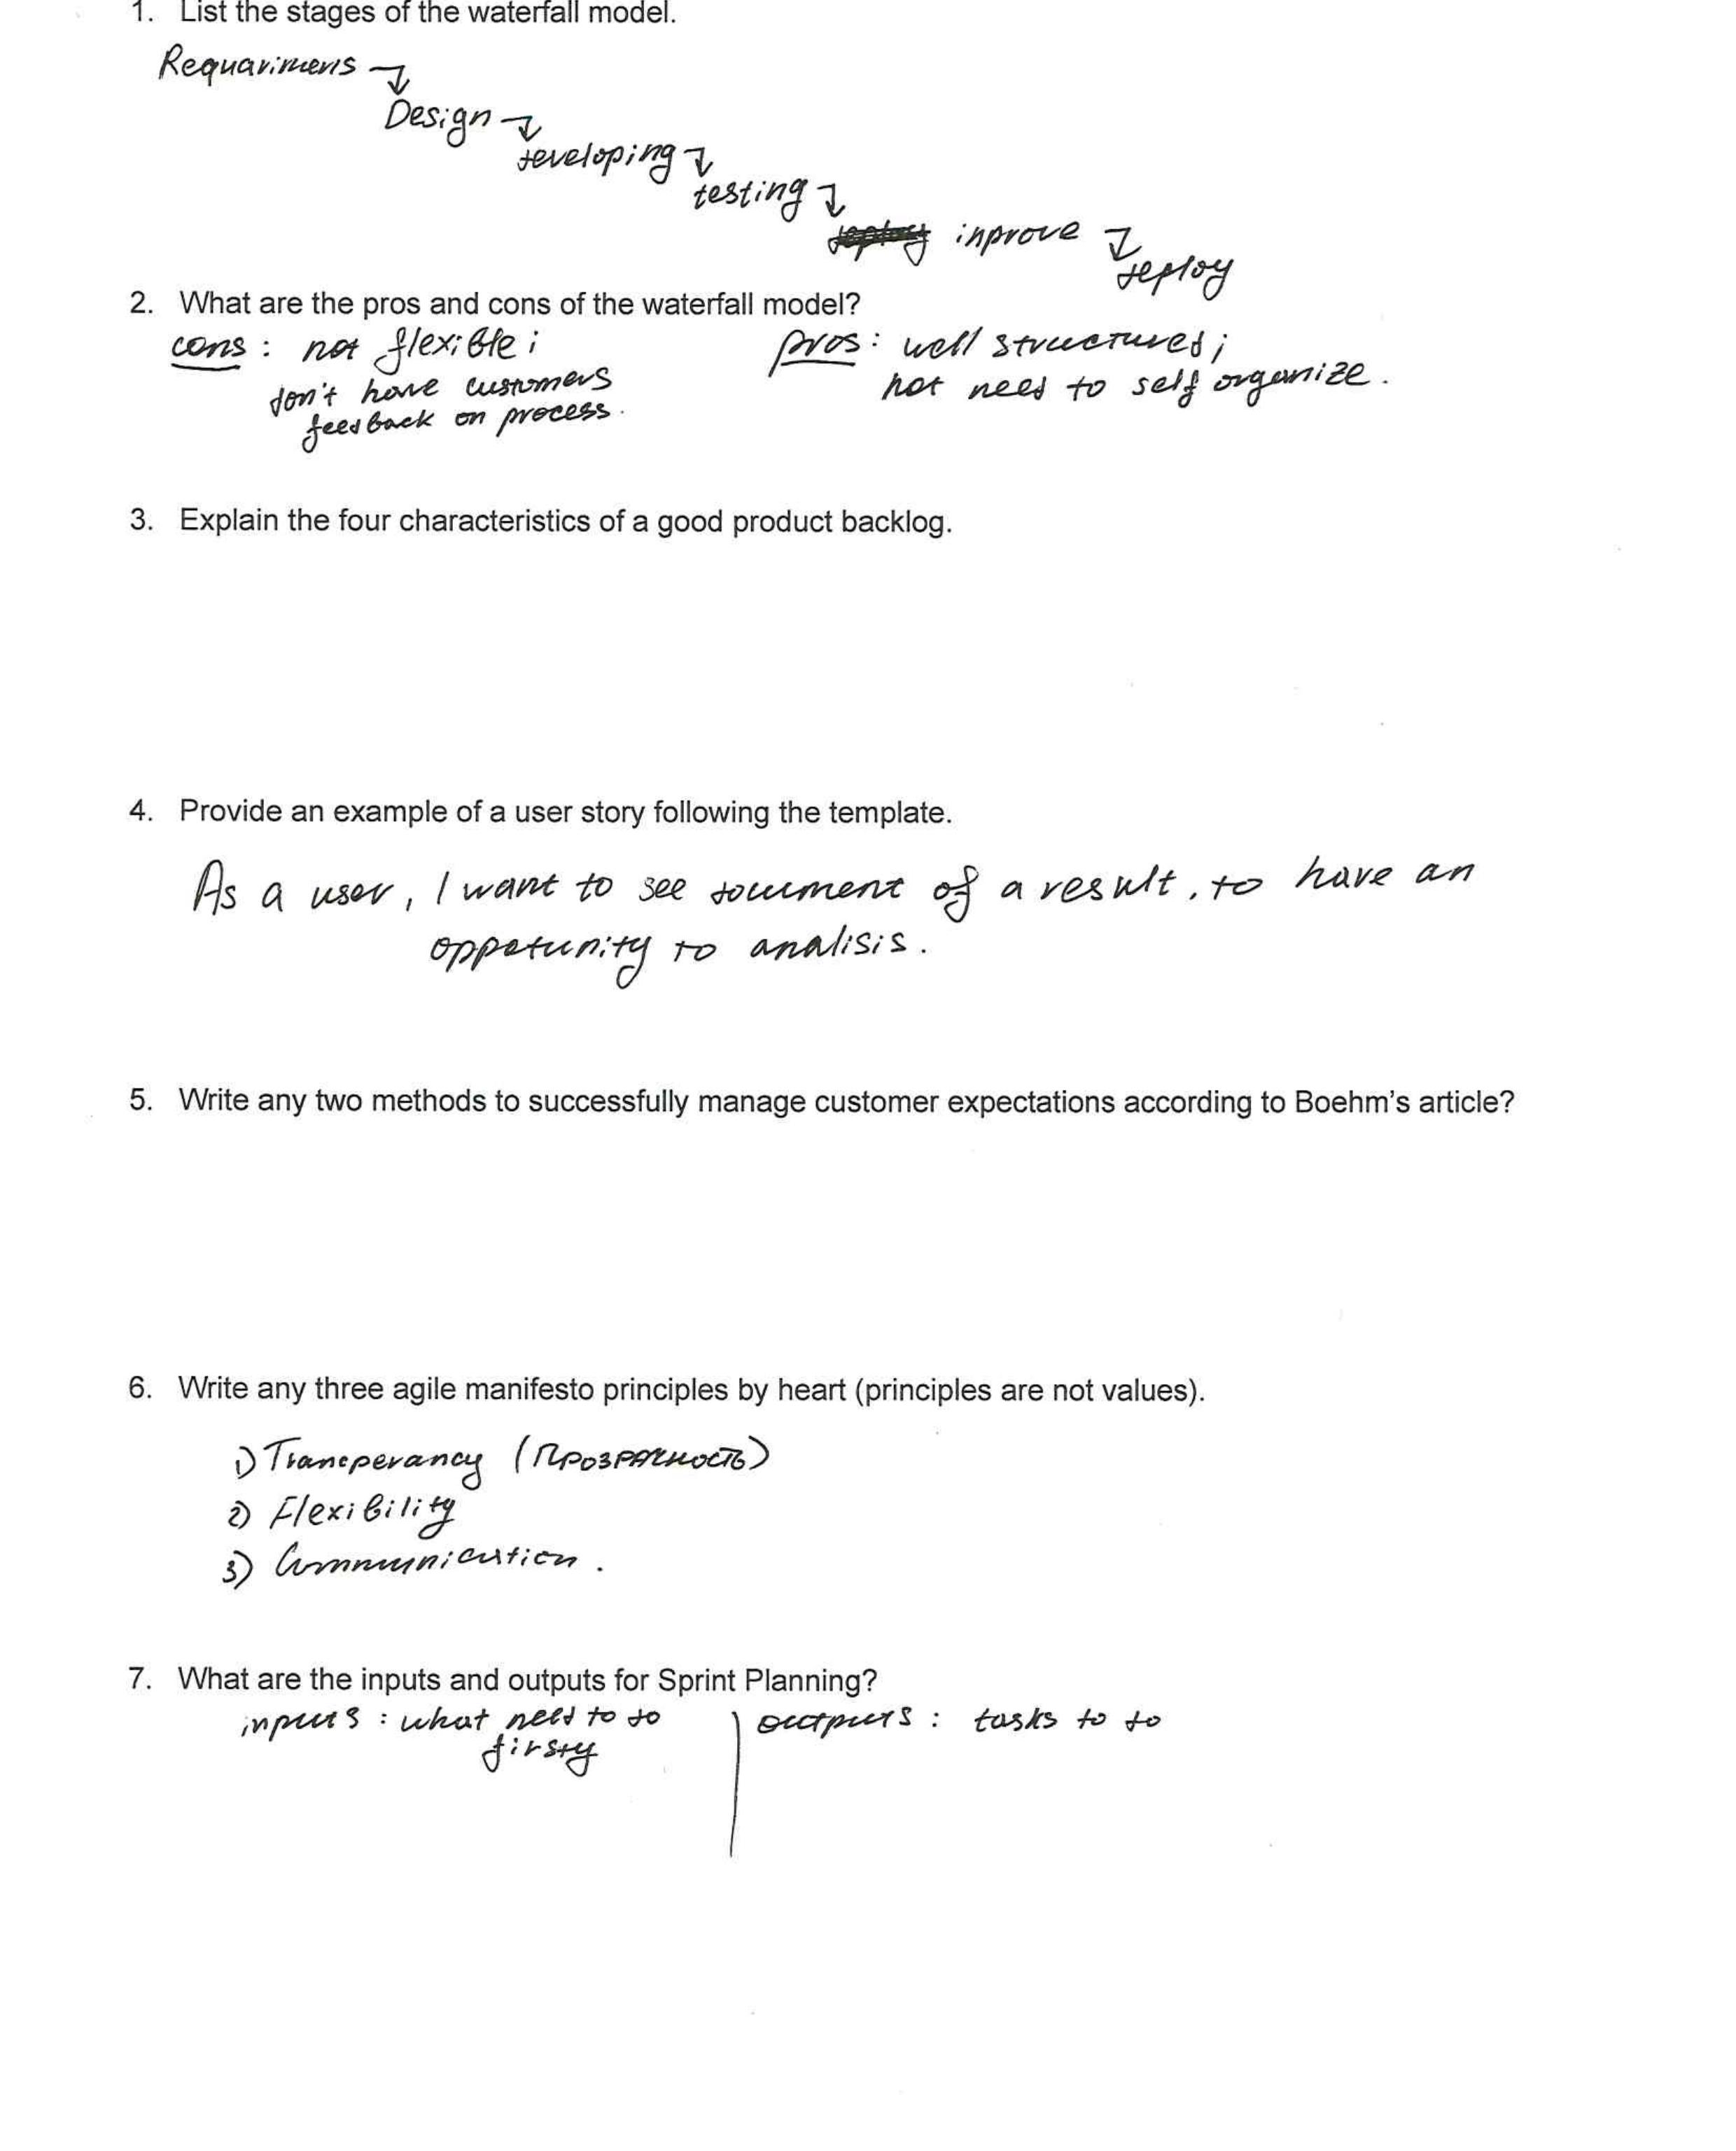 1. List the stages of the waterfall model.
Requariments
Design
developing
testing
inprove
deploy
2. What are the pros and cons of the waterfall model?
cons: not flexible;
don't have customers
feedback on process.
pros: well structured;
not need to self organize.
3. Explain the four characteristics of a good product backlog.
4. Provide an example of a user story following the template.
As a user, I want to see document of a result, to have an
oppetunity to analisis.
5. Write any two methods to successfully manage customer expectations according to Boehm's article?
6. Write any three agile manifesto principles by heart (principles are not values).
1) Transperancy (Прозрачность)
2) Flexibility
3) Communication.
7. What are the inputs and outputs for Sprint Planning?
inputs: what need to do
firsty
outputs: tasks to do